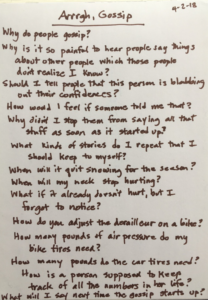 Arrrgh, Gossip
9-2-15
Why do people gossip?
Why is it so painful to hear people say things
about other people which those people
don't realize I know?
Should I tell people that this person is blabbing
out their confidences?
How would I feel if someone told me that?
Why didn't I stop them from saying all that
stuff as soon as it started up?
What kinds of stories do I repeat that I
should keep to myself?
When will it quit snowing for the season?
When will my neck stop hurting?
What if it already doesn't hurt, but I
forgot to notice?
How do you adjust the derailleur on a bike?
How many pounds of air pressure do my
bike tires need?
How many pounds do the car tires need?
How is a person supposed to keep
track of all the numbers in her life?
What will I say next time the gossip starts up?